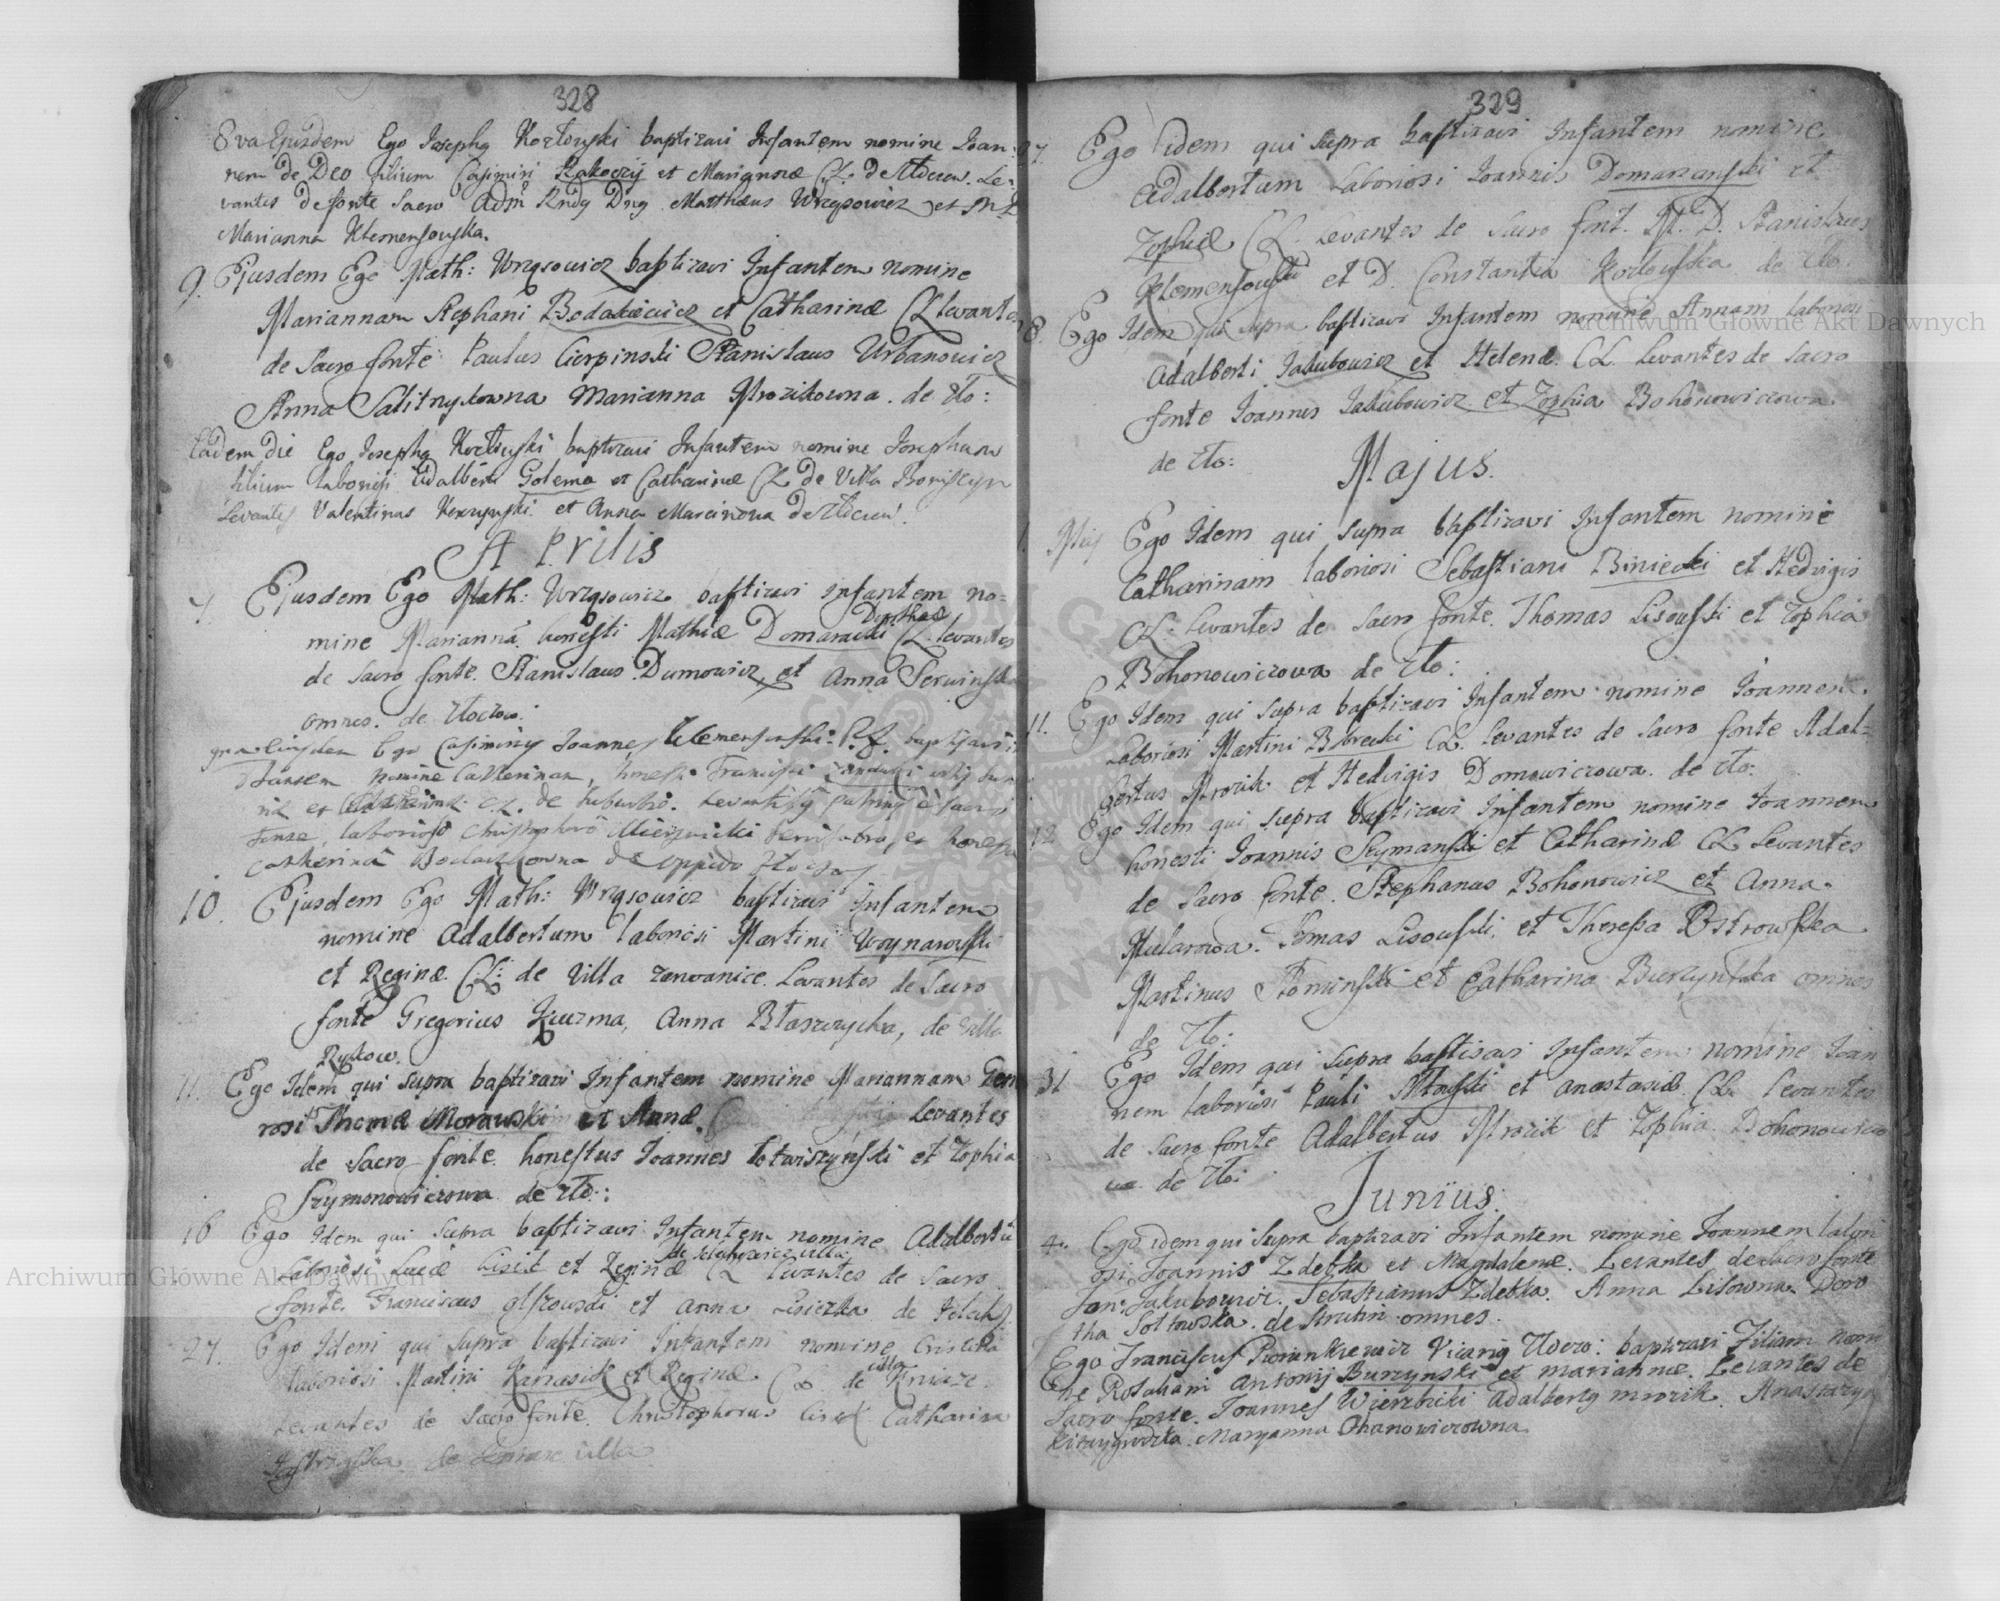 328
8va Ejusdem Ego Josephg Kozłowski baptizavi Infantem nomine Joan:
nem de Deo filium Casimiri Rakoczy et Mariannæ CL. de Złoczow. Le:
vantes de fonte Sacro Adm Rndg Dng Matthæus Wrzęsowicz et M.
Marianna Klemensowska.
9. Ejusdem Ego Math: Wrzęsowicz baptizavi Infantem nomine
Mariannam Stephani Bodakiewicz et Catharinæ CL levantes
de Sacro fonte Paulus Cierpinski Stanislaus Urbanowicz
Anna Salitrykowna Marianna Mrozikowna. de Zło:
Eadem die Ego Josephg Kozłowski baptizavi Infantem nomine Josephum
filium laboriosi Adalberti Golema et Catharinæ CL de Villa Boniszyn
Levantes Valentinus et Anna Marcinowa de Złoczow.
Aprilis
Ejusdem Ego Math: Wrzęsowicz baptizavi infantem no-
mine Marianna honesti Mathiæ Domaracki Dorotheæ CL. levantes
de Sacro fonte. Stanislaus Dumowicz, et Anna Serwinska
omnes. de Złoczow.
Ego Casimirg Joannes Klemensowski P.Z. baptizavi
Infantem nomine Catherinam, honesti Francisci
et CL. de Suburbio. Levantibg patrinis e sacro
fonte, laborioso Christophoro Mierzwicki et honesta
Catherina de oppido Złoczow
10. Ejusdem Ego Math: Wrzęsowicz baptizavi Infantem
nomine Adalbertum laboriosi Martini Woynarowski
et Reginæ CL: de Villa Zarwanice. Levantes de Sacro
fonte Gregorius Kuzma, Anna Błaszczycka, de Villa
Rykow.
11. Ego Idem qui supra baptizavi Infantem nomine Mariannam Gene
rosi Thomæ Morawski et Annæ. Levantes
de Sacro fonte. honestus Joannes et Zophia
Szymonowiczowa de Zło:
16 Ego Idem qui supra baptizavi Infantem nomine Adalbertu
Laboriosi Lucæ Lisik et Reginæ CL levantes de Sacro
fonte. Franciscus Olszowski et Anna Lisiczka de
27. Ego Idem qui supra baptizavi Infantem nomine
laboriosi Martini Karasik et Reginæ CL de villa Kniaze
Levantes de Sacro fonte. Christophorus Lisek Catharina
de villa
329
27. Ego idem qui supra baptizavi Infantem nomine
Adalbertum Laboriosi Joannis Domaranski et
Zophiæ CL. Levantes de Sacro font. M. D. Stanislaus
Klemensowski et D. Constantia Kozłowska de Zło.
8. Ego Idem qui supra baptizavi Infantem nomine Annam laboriosi
Adalberti Jakubowicz et Helenæ CL. Levantes de Sacro
fonte Joannes Jakubowicz et Zophia Bohonowiczowa
de Zło:
Majus.
1. Maj Ego Idem qui supra baptizavi Infantem nomine
Catharinam laboriosi Sebastiani Biniecki et Hedvigis
CL. Levantes de Sacro fonte. Thomas Lisowski et Zophia
Bohonowiczowa de Zło:
11. Ego Idem qui supra baptizavi Infantem nomine Joannem
Laboriosi Martini CL. Levantes de Sacro fonte Adal-
bertus Mrozik et Hedvigis Domowiczowa de Zło:
12 Ego Idem qui supra baptizavi Infantem nomine Joannem
honesti Joannis Szymanski et Catharinæ CL Levantes
de Sacro fonte. Stephanus Bohonowicz et Anna
Mularowa. Tomas Lisowski et Theressa Ostrowska
Martinus Słominski et Catharina Burzynska omnes
de Zło.
31 Ego Idem qui supra baptisavi Infantem nomine Joan
nem laboriosi Pauli et Anastasiæ CL. Levantes
de Sacro fonte Adalbertus Mrozik et Zophia Bohonowiczo
wa de Zło:
Junius.
4. Ego idem qui supra baptizavi Infantem nomine Joannem labori
osi Joannis Zdebka et Magdalenæ. Levantes de Sacro fonte
Jan. Jakubowicz. Sebastianus Zdebka. Anna Lisowna. Doro
tha Soltowska. de Strutin omnes.
Ego Franciscus Vicarig Złocz: baptizavi Filiam nomi
ne Rosaliam Antonij Burzynski et Mariannæ. Levantes de
Sacro fonte. Joannes Wierzbicki Adalbertg Mrozik. Anastazya
Maryanna Ohanowiczowna
Archiwum Główne Akt Dawnych
Archiwum Główne Akt Dawnych